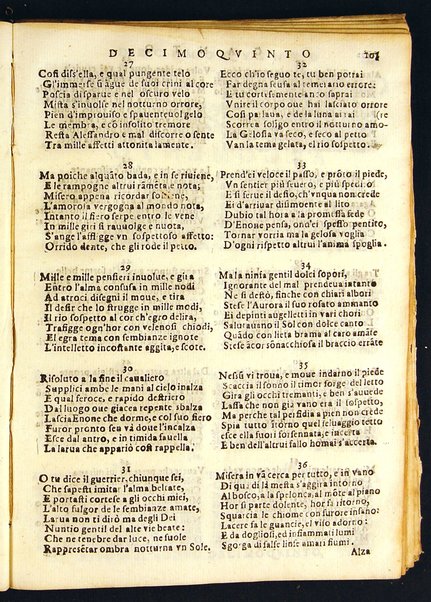 DECIMOQVINTO 103
27
Cosi diss'ella, e qual pungente telo
Gl'immerse sì ague de suoi crini al core
Poscia disparue e nel oscuro velo
Mista s'inuolse nel notturno orrore,
Pien d'improuiso e spauenteuol gelo
Le membra, e cō insolito tremore
Resta Alessandro e mal discorre o sente
Tra mille affetti attonita lamente.
28
Ma poiche alquāto bada, e in se riuiene,
E le rampogne altrui rāmēta, e nota;
Misero appena ricordar sostiene,
L'amorosa vergogna al mondo nota,
Intanto il fiero serpe entro le vene
In mille giri si rauuolge e nuota,
S'ange l'afflige vn sospettoso affetto:
Orrido dente, che gli rode il petto.
29
Mille e mille pensieri inuolue, e gira
Entro l'alma confusa in mille nodi
Ad atroci disegni il moue, e tira
Il desir che lo strugge in mille modi,
Il rio sospetto al cor ch'egro delira,
Trafigge ogn'hor con velenosi chiodi,
El egra tema con sembianze ignote
L'intelletto incostante aggita, e scote.
30
Risoluto a la fine il caualiero
Supplici ambe le mani al cielo inalza
E qual feroce, e rapido destriero
Dal luogo oue giacea repente sbalza
Lascia Enone che dorme, e col suo fiero
Furor pronto sen và doue l'incalza
Esce dal antro, e in timida fauella
La larua che apparì così rappella.
31
O tu dice il guerrier, chiunque sei,
Che sapesti imitar l'alma beltate,
E portasti cortese a gli occhi miei,
L'alto fulgor de le sembianze amate,
Larua non ti dirò ma degli Dei
Nuntio gentil del alte vie beate:
Che ne tenebre dar luce, ne suole
Rappresētar ombra notturna vn Sole.
32
Ecco ch'io seguo te, tu ben potrai
Far degna scusa al temerario errore:
E tu cortesemente non saprai
Vnire il corpo oue hai lasciato orrore
Così parlaua, e de la luna ai rai
Scorrea solingo entro il notturno amo-
La Gelosia va seco, e seco al petto
Van la tema gelata, el rio sospetto.
33
Prend'ei veloce il passo, e prōto il piede,
Vn sentier più seuero, e più spedito:
E si ferue il desio, ch'vnqua non crede
Ei d'arriuar disūmoente al lito
Dubio tal hora a la promessa sede
D'Enone pensa, ond'ei spesso pentito,
Tornar vorria ma la gelosa voglia
D'ogni rispetto altrui l'anima spoglia.
34
Ma la ninfa gentil dolci sopori,
Ignorante del mal prendeua intanto
Ne si destò, finche con chiari albori
Stese l'Aurora il suo rosato ammanto
Ei depinti augelletti in vari chori
Salutauano il Sol con dolce canto
Quādo con lieta brama al caro amāte
Stese ācor sonacchiosa il braccio errāte
35
Nessū vi troua, e moue indarno il piede
Scaccia il sonno il timor sorge del letto
Gira gli occhi tremanti, e ben s'auuede
Lassa che non già vano era il sospetto,
Ma perche tal perfidia a pien non crede
Spia tutto intorno quel seluaggio tetto
esce ella fuori forsennata, e incerta
E ben dell'altrui fallo homai s'accerta.
36
Misera in và cerca per tutto, e in vano
Di quì di là mesta s'aggira intorno
Al bosco, a la spelonca, al mōte al piano
Hor si parte dolente, hor fà ritorno,
Squarcia le chiome con furore insano:
Lacera fa le guancie, el viso adorno:
E da dogliosi, ed infiammati lumi
Sgorga di false linfe amari fiumi.
Alza